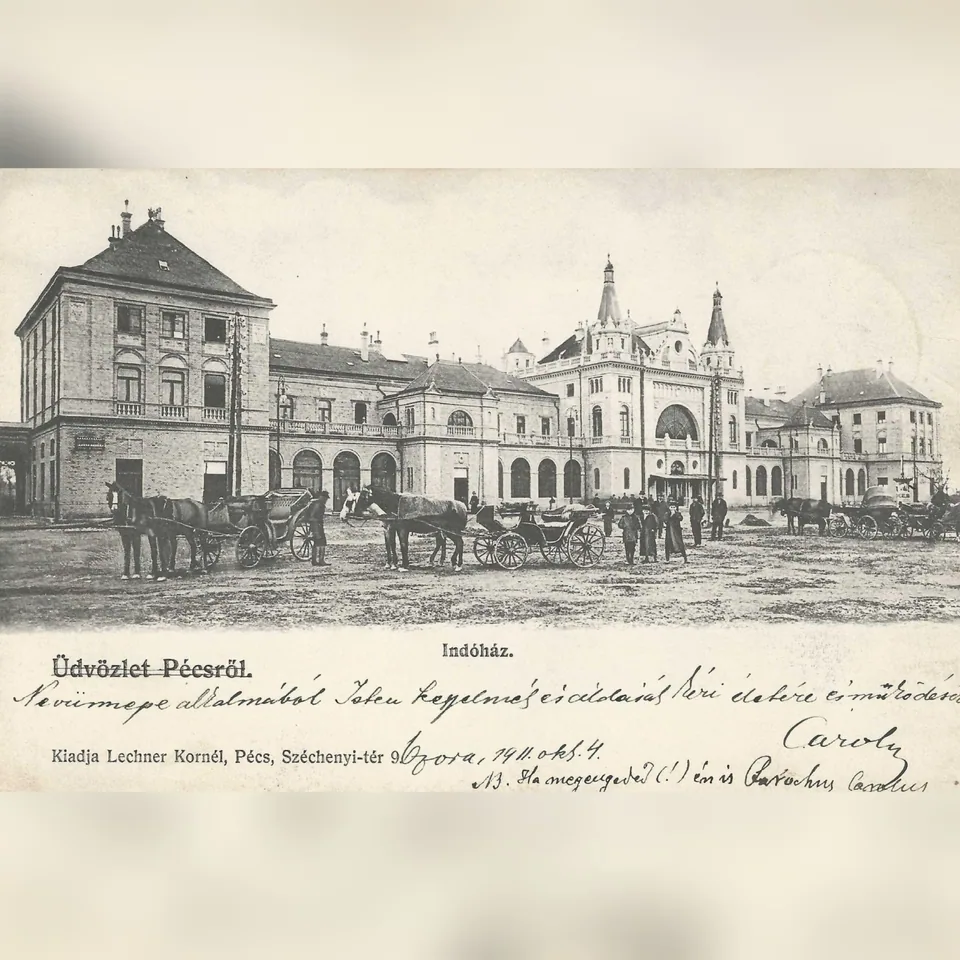 Indóház.
Üdvözlet Pécsről.
Nevünnepe alkalmából Isten kegyelmét és áldását kéri életére és működésé
Caroly
Kiadja Lechner Kornél, Pécs, Széchenyi-tér 9. Ozora, 1911. okt. 4.
NB. Ha megengeded (!) én is Parochus Carolus